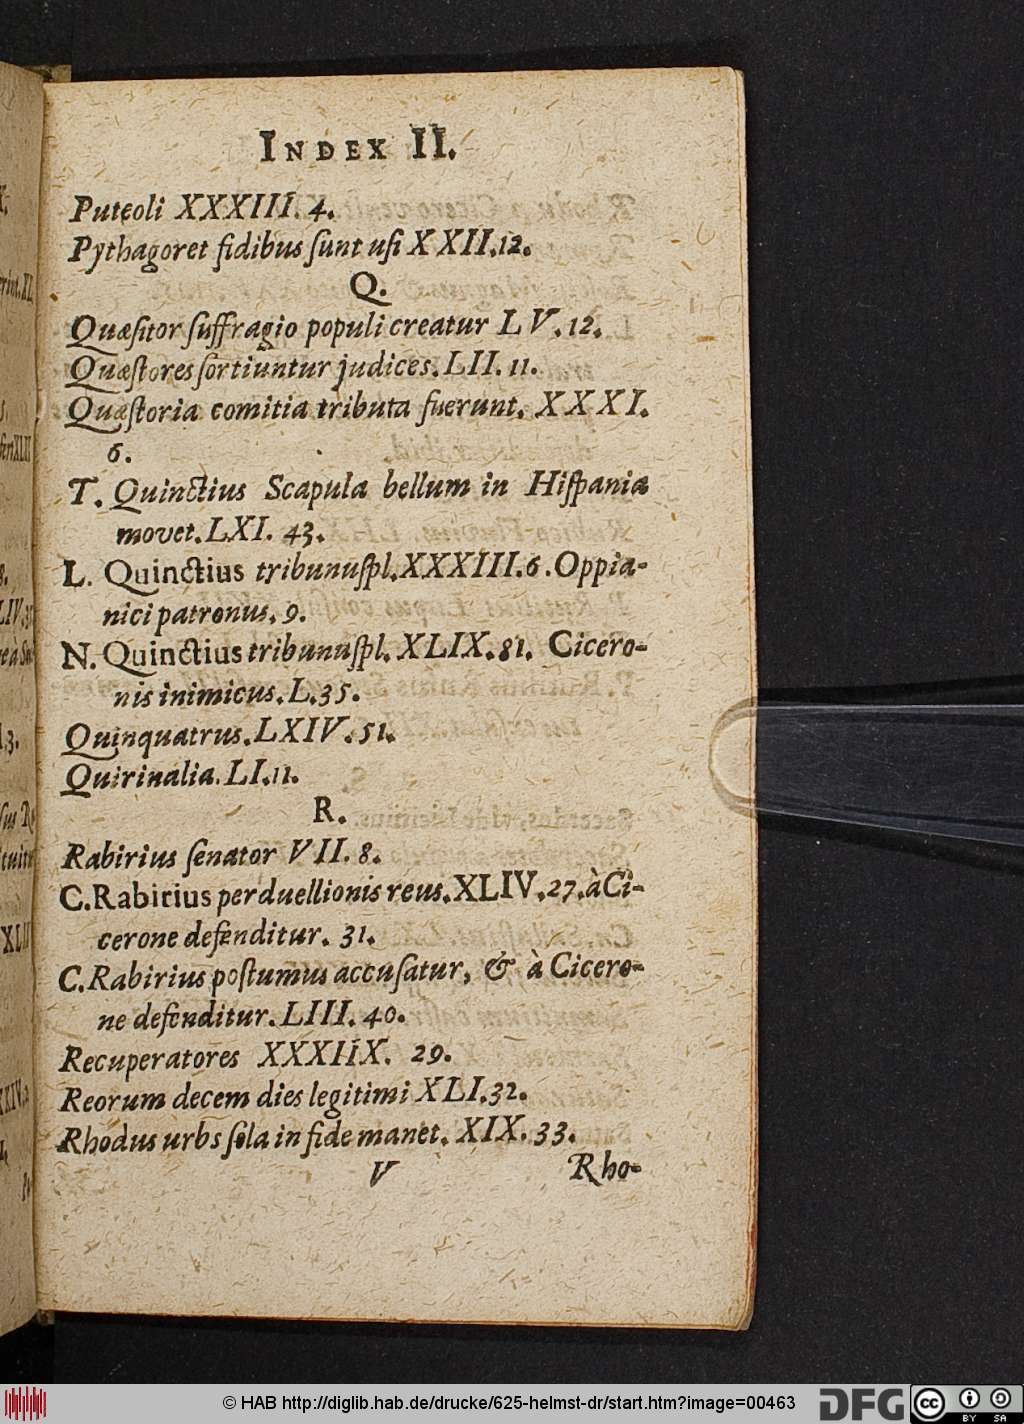 INDEX II.
Puteoli XXXIII. 4.
Pythagoret fidibus ſunt uſi XXII.12.
Q.
Quæſitor ſuffragio populi creatur LV.12.
Quæſtores ſortiuntur judices. LII. 11.
Quæſtoria comitia tributa fuerunt. XXXI.
6.
T. Quinctius Scapula bellum in Hiſpania
movet. LXI. 43.
L. Quinctius tribunuſpl. XXXIII.6. Oppia-
nici patronus. 9.
N. Quinctius tribunuſpl. XLIX.81. Cicero-
nis inimicus. L.35.
Quinquatrus. LXIV.51.
Quirinalia. LI.11.
R.
Rabirius ſenator VII. 8.
C. Rabirius perduellionis reus. XLIV.27. à Ci-
cerone defenditur. 31.
C. Rabirius poſtumus accuſatur, & à Cicero-
ne defenditur. LIII. 40.
Recuperatores XXXIIX. 29.
Reorum decem dies legitimi XLI.32.
Rhodus urbs ſola in fide manet. XIX. 33.
V Rho-
© HAB http://diglib.hab.de/drucke/625-helmst-dr/start.htm?image=00463
DFG
cc BY SA